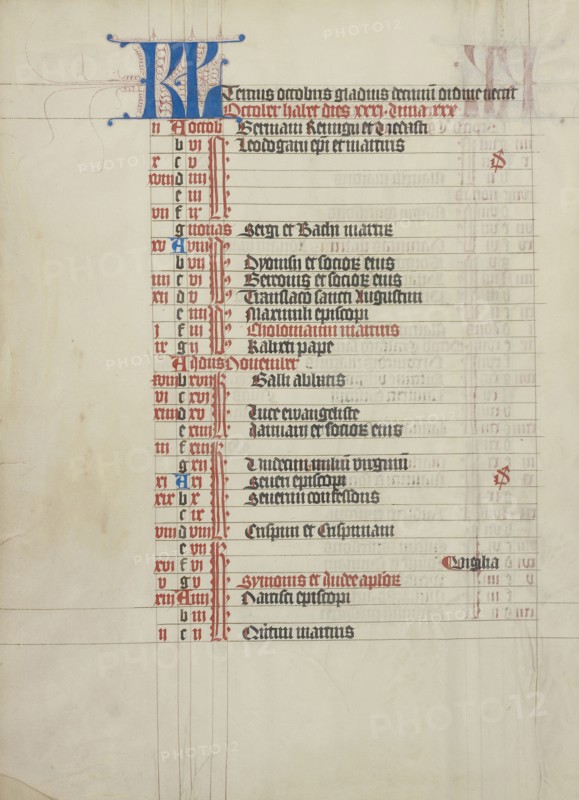 KL Tercius octobris gladius decimū ordine nectit
October habet dies xxxi · luna xxx
n A octob Germani Remigii et Vedasti
b vi Leodogarii epi et martiris
x c v
xviii d iiii
e iii
vii f ii
g nonas Sergi et Bachi martir
xv A viii
b vii Dyonisii et socior eius
iiii c vi Gereonis et socior eius
xii d v Translacō sancti Augustini
e iiii Maximili episcopi
i f iii Cholomanni martiris
ix g ii Kalixti pape
A Idus Nouember
xvii b xvii Galli abbatis
vi c xvi
xiiii d xv Luce ewangeliste
e xiiii Januarii et socior eius
iii f xiii
g xii Undecim miliū virginū
xi A xi Seueri episcopi
xix b x Seuerini confessoris
c ix
viii d viii Crispini et Crispiniani
e vii
xvi f vi Vigilia
v g v Symonis et Iude aplor
xiii A iiii Narcisci episcopi
b iii
ii c ii Quitini martiris
PHOTO12